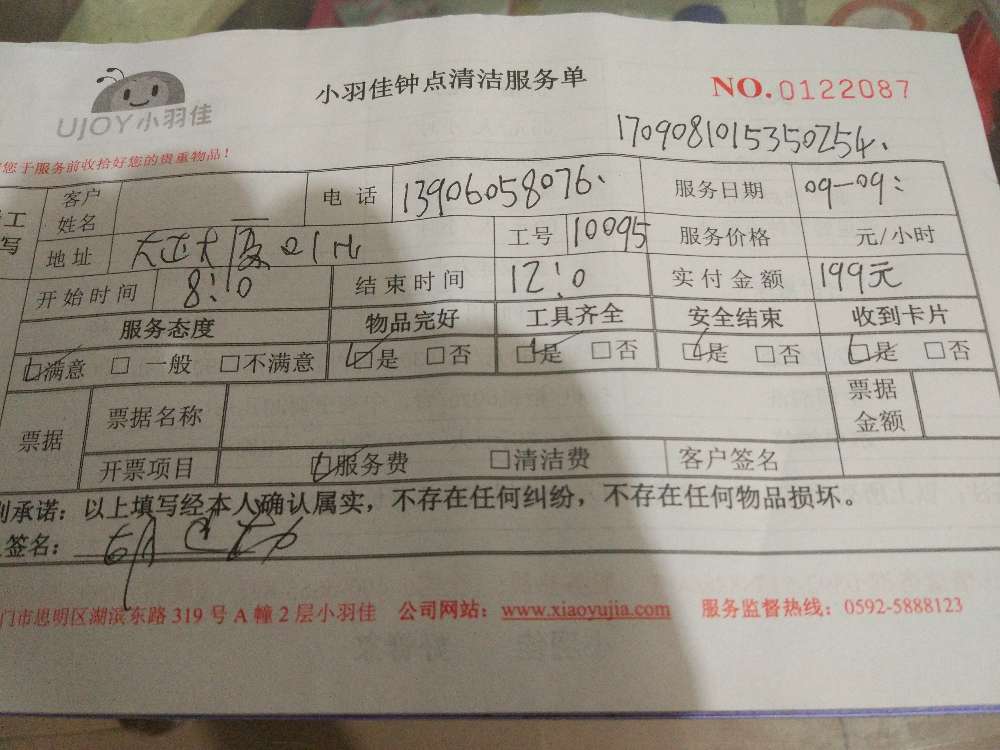 UJOY小羽佳
小羽佳钟点清洁服务单
NO.0122087
1709081015350254.
您于服务前收拾好您的贵重物品！
工 客户姓名 电话 13906058076. 服务日期 09-09:
写 地址 大正大厦 工号 10095 服务价格 元/小时
开始时间 8:10 结束时间 12:10 实付金额 199元
服务态度 物品完好 工具齐全 安全结束 收到卡片
□满意 □一般 □不满意 □是 □否 □是 □否 □是 □否 □是 □否
票据 票据名称 票据金额
开票项目 □服务费 □清洁费 客户签名
承诺：以上填写经本人确认属实，不存在任何纠纷，不存在任何物品损坏。
签名：
门市思明区湖滨东路319号A幢2层小羽佳 公司网站：www.xiaoyujia.com 服务监督热线：0592-5888123